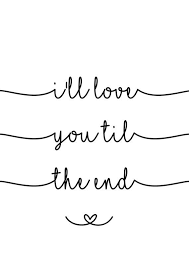 i'll love
you til
the end